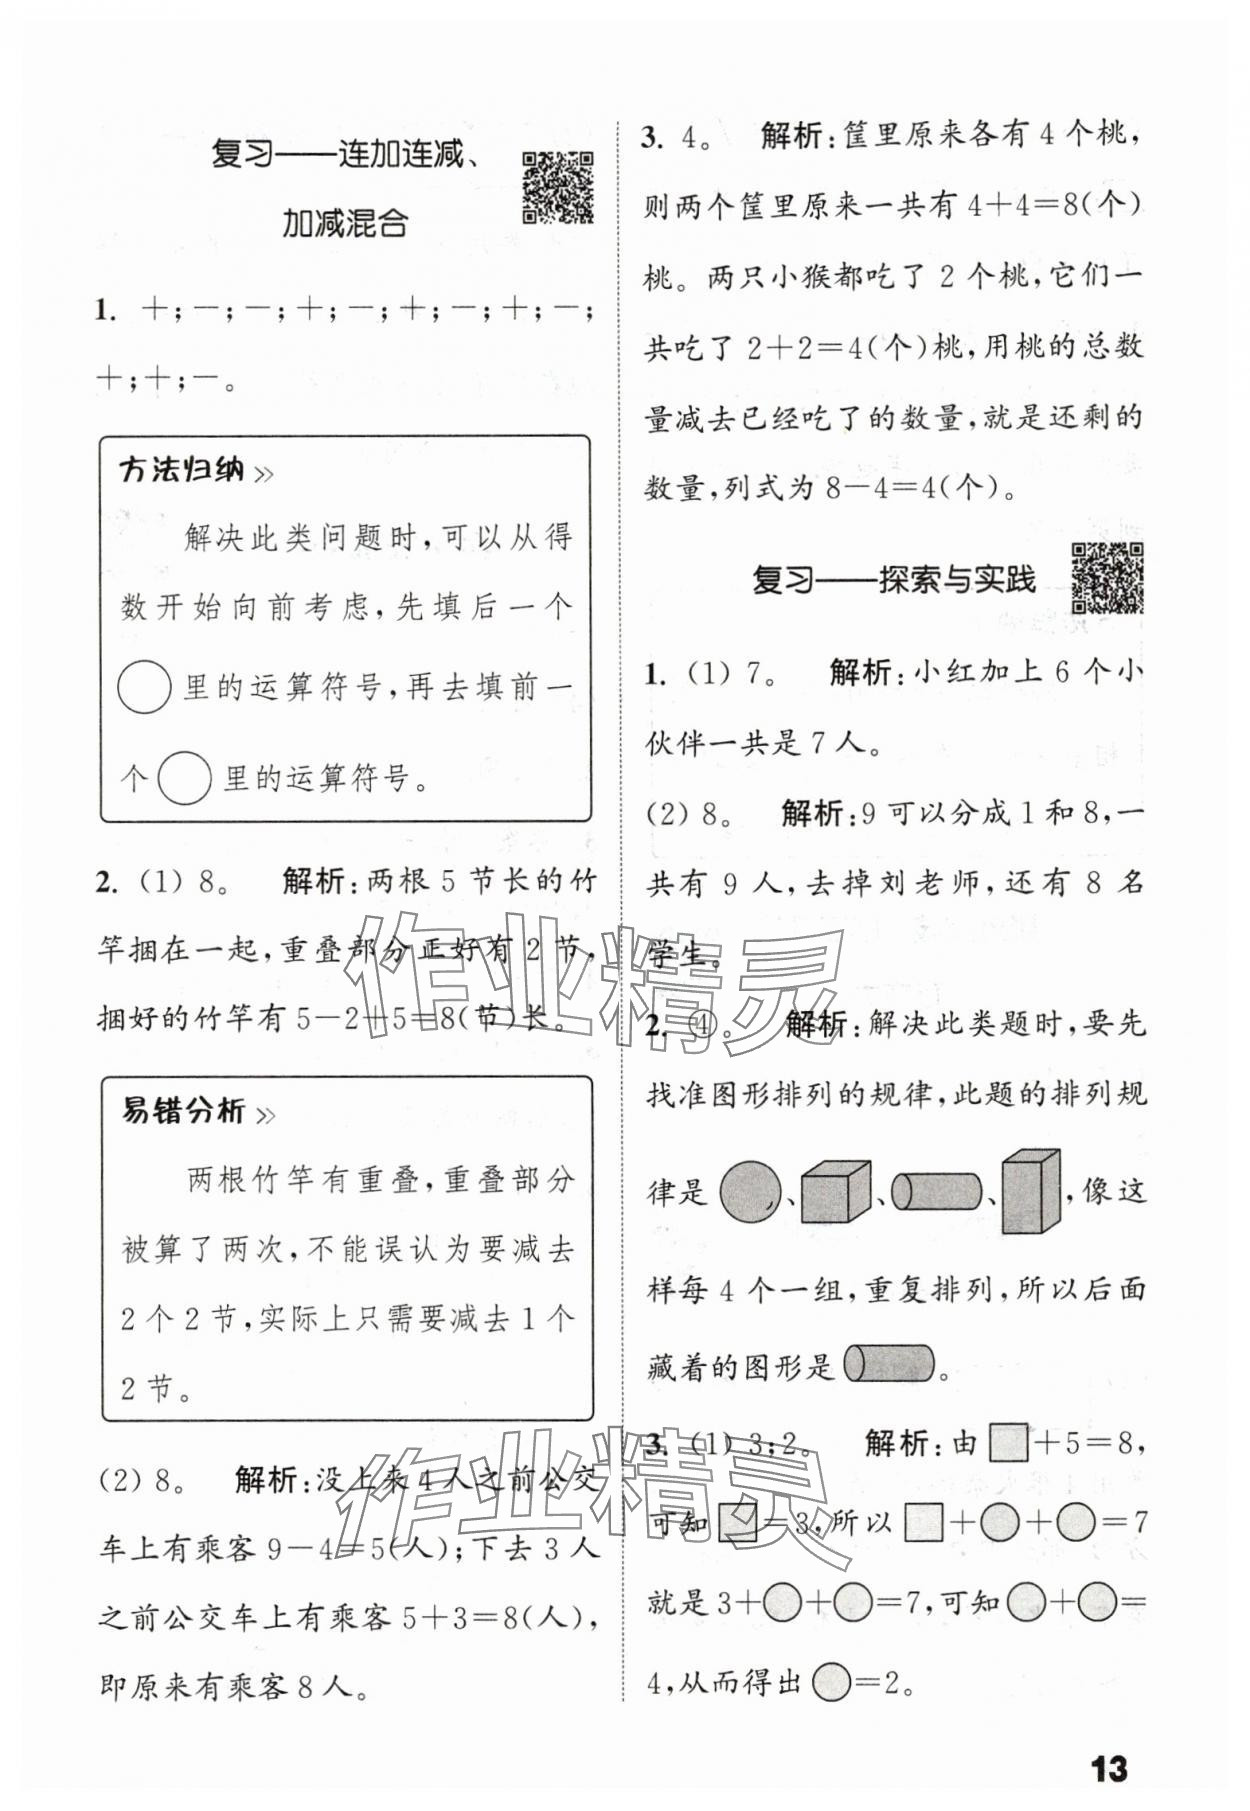 复习——连加连减、
加减混合
1. ＋；－；－；＋；－；＋；－；＋；－；
＋；＋；－。
方法归纳»
解决此类问题时，可以从得
数开始向前考虑，先填后一个
○里的运算符号，再去填前一
个○里的运算符号。
2. (1) 8。 解析：两根 5 节长的竹
竿捆在一起，重叠部分正好有 2 节，
捆好的竹竿有 5－2＋5＝8(节)长。
易错分析»
两根竹竿有重叠，重叠部分
被算了两次，不能误认为要减去
2 个 2 节，实际上只需要减去 1 个
2 节。
(2) 8。 解析：没上来 4 人之前公交
车上有乘客 9－4＝5(人)；下去 3 人
之前公交车上有乘客 5＋3＝8(人)，
即原来有乘客 8 人。
3. 4。 解析：筐里原来各有 4 个桃，
则两个筐里原来一共有 4＋4＝8(个)
桃。两只小猴都吃了 2 个桃，它们一
共吃了 2＋2＝4(个)桃，用桃的总数
量减去已经吃了的数量，就是还剩的
数量，列式为 8－4＝4(个)。
复习——探索与实践
1. (1) 7。 解析：小红加上 6 个小
伙伴一共是 7 人。
(2) 8。 解析：9 可以分成 1 和 8，一
共有 9 人，去掉刘老师，还有 8 名
学生。
2. ④。 解析：解决此类题时，要先
找准图形排列的规律，此题的排列规
律是、、、，像这
样每 4 个一组，重复排列，所以后面
藏着的图形是。
3. (1) 3；2。 解析：由□＋5＝8，
可知□＝3，所以□＋○＋○＝7
就是 3＋○＋○＝7，可知○＋○＝
4，从而得出○＝2。
13
作业精灵
作业精灵